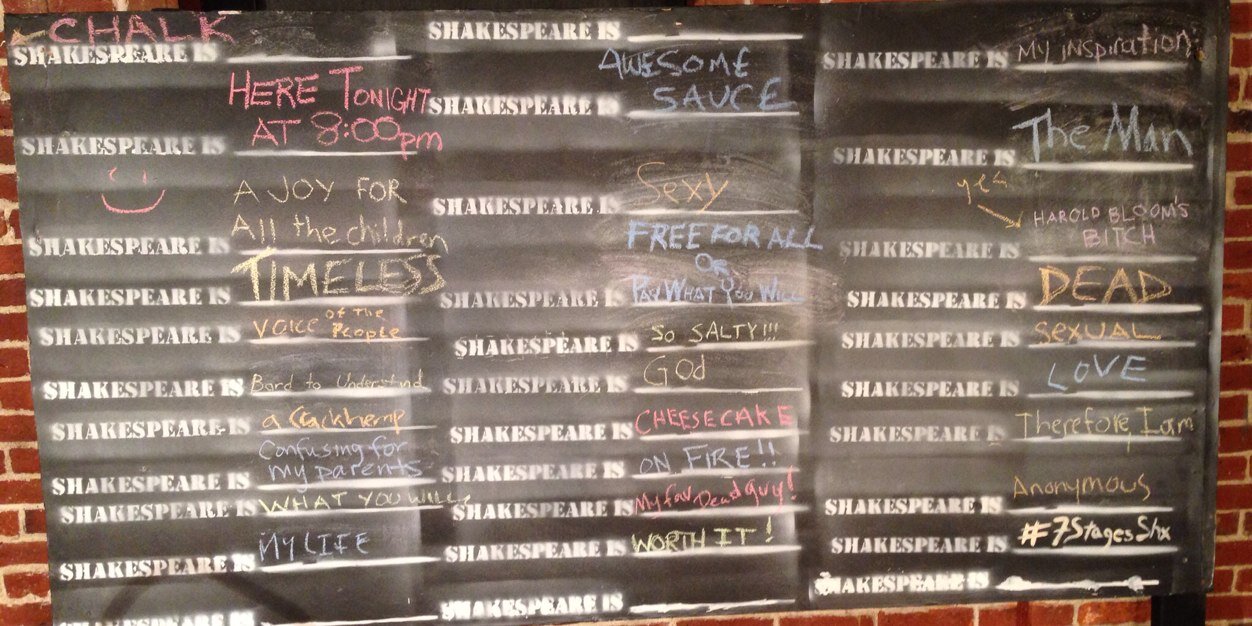 CHALK
SHAKESPEARE IS
HERE TONIGHT
AT 8:00pm
SHAKESPEARE IS
A JOY FOR
All the children
SHAKESPEARE IS
TIMELESS
SHAKESPEARE IS
Voice of the People
SHAKESPEARE IS
Bard to Understand
SHAKESPEARE IS
a Crackhemp
SHAKESPEARE IS
Confusing for
my parents
SHAKESPEARE IS
WHAT YOU WILL
SHAKESPEARE IS
MY LIFE
SHAKESPEARE IS
SHAKESPEARE IS
SHAKESPEARE IS
AWESOME
SAUCE
SHAKESPEARE IS
Sexy
SHAKESPEARE IS
FREE FOR ALL
OR
PAY WHAT YOU WILL
SHAKESPEARE IS
SO SALTY!!!
SHAKESPEARE IS
God
SHAKESPEARE IS
CHEESECAKE
SHAKESPEARE IS
ON FIRE!!
SHAKESPEARE IS
My fav Dead guy!
SHAKESPEARE IS
WORTH IT!
SHAKESPEARE IS
SHAKESPEARE IS
SHAKESPEARE IS My inspiration
The Man
SHAKESPEARE IS
yes
HAROLD BLOOM'S
BITCH
SHAKESPEARE IS
SHAKESPEARE IS DEAD
SHAKESPEARE IS SEXUAL
SHAKESPEARE IS LOVE
SHAKESPEARE IS Therefore I am
SHAKESPEARE IS Anonymous
SHAKESPEARE IS #7StagesShx
SHAKESPEARE IS